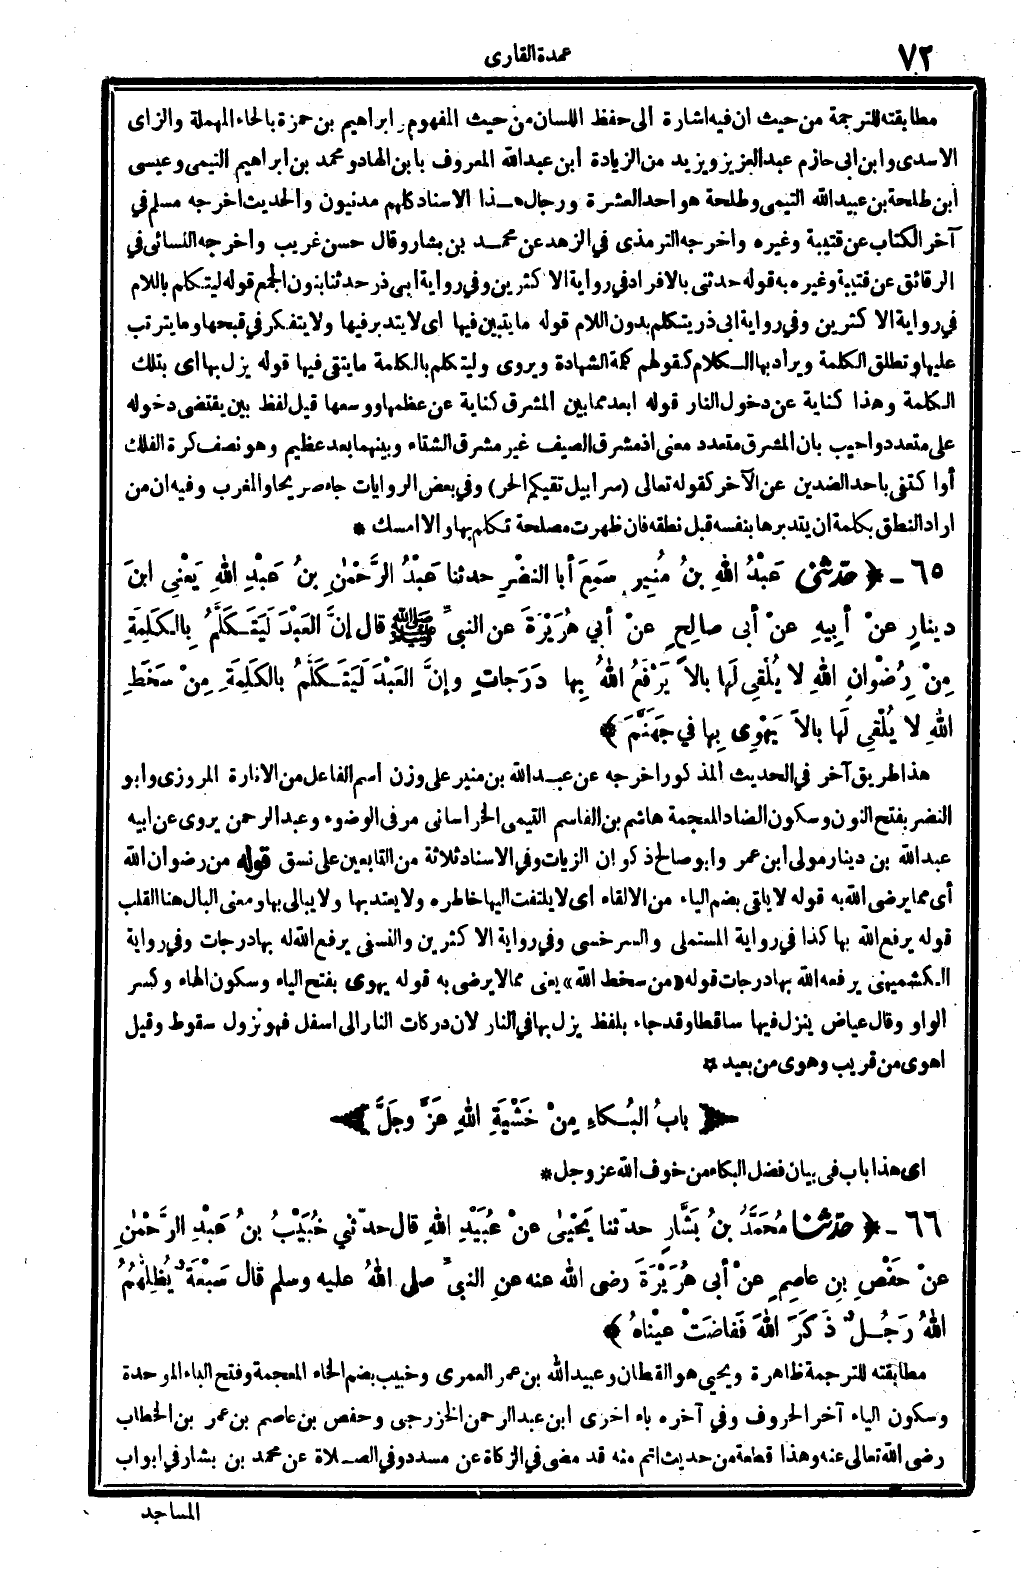 ٧٢
عمدة القارى
مطابقته للترجمة من حيث ان فيه اشارة الى حفظ اللسان من حيث المفهوم. ابراهيم بن حمزة بالحاء المهملة والزاى
الاسدى وابن ابى حازم عبد العزيز ويزيد من الزيادة ابن عبد الله المعروف بابن الهاد ومحمد بن ابراهيم التيمى وعيسى
ابن طلحة بن عبيد الله التيمى وطلحة هو احد العشرة ورجال هذا الاسناد كلهم مدنيون والحديث اخرجه مسلم فى
آخر الكتاب عن قتيبة وغيره واخرجه الترمذى فى الزهد عن محمد بن بشار وقال حسن غريب واخرجه النسائى فى
الرقائق عن قتيبة وغيره به قوله حدثنى بالافراد فى رواية الاكثرين وفى رواية ابى ذر حدثنا بنون الجمع قوله ليتكلم باللام
فى رواية الاكثرين وفى رواية ابى ذر يتكلم بدون اللام قوله ما يتبين فيها اى لا يتدبر فيها ولا يتفكر فى قبحها وما يترتب
عليها وتطلق الكلمة ويراد بها الكلام كقولهم كلمة الشهادة ويروى وليتكلم بالكلمة ما يتقى فيها قوله يزل بها اى بتلك
الكلمة وهذا كناية عن دخول النار قوله ابعد مما بين المشرق كناية عن عظمها ووسعها قيل لفظ بين يقتضى دخوله
على متعدد واجيب بان المشرق متعدد معنى اذ مشرق الصيف غير مشرق الشتاء وبينهما بعد عظيم وهو نصف كرة الفلك
أوا كتفى باحد الضدين عن الآخر كقوله تعالى (سرابيل تقيكم الحر) وفى بعض الروايات جاء صريحا والمغرب وفيه ان من
اراد النطق بكلمة ان يتدبرها بنفسه قبل نطقه فان ظهرت مصلحة تكلم بها والا امسك *
٦٥ - ﴿ حدثنى عَبْدُ اللهِ بنُ مُنِيرٍ سَمِعَ أبا النضْرِ حدثنا عَبْدُ الرَّحْمٰنِ بنُ عَبْدِ اللهِ يَعْنِى ابنَ
دينارٍ عنْ أبِيهِ عنْ أبى صالِحٍ عنْ أبي هُرَيْرَةَ عن النبىِّ ﷺ قال إنَّ العَبْدَ لَيَتَكَلَّمُ بِالكَلِمَةِ
مِنْ رِضْوانِ اللهِ لا يُلْقِى لَها بالاً يَرْفَعُ اللهُ بِها دَرَجاتٍ وإنَّ العَبْدَ لَيَتَكَلَّمُ بالكَلِمَةِ مِنْ سَخَطِ
اللهِ لا يُلْقِى لَها بالاً يَهْوِى بِها في جَهَنَّمَ ﴾
هذا طريق آخر فى الحديث المذكور اخرجه عن عبد الله بن منير على وزن اسم الفاعل من الانارة المروزى وابو
النضر بفتح النون وسكون الضاد المعجمة هاشم بن القاسم التيمى الخراسانى مر فى الوضوء وعبد الرحمن يروى عن ابيه
عبد الله بن دينار مولى ابن عمر وابو صالح ذكوان الزيات وفى الاسناد ثلاثة من التابعين على نسق قوله من رضوان الله
أى مما يرضى الله به قوله لا يلقى بضم الياء من الالقاء اى لا يلتفت اليها خاطره ولا يعتد بها ولا يبالى بها ومعنى البال هنا القلب
قوله يرفع الله بها كذا فى رواية المستملى والسرخسى وفى رواية الاكثرين والنسفى يرفع الله له بها درجات وفى رواية
الكشميهنى يرفعه الله بها درجات قوله «من سخط الله» يعنى مما لا يرضى به قوله يهوى بفتح الياء وسكون الهاء وكسر
الواو وقال عياض ينزل فيها ساقطا وقد جاء بلفظ يزل بها فى النار لان دركات النار الى اسفل فهو نزول سقوط وقيل
اهوى من قريب وهوى من بعيد *
﴿ بابُ البُكاءِ مِنْ خَشْيَةِ اللهِ عَزَّ وجَلَّ ﴾
اى هذا باب فى بيان فضل البكاء من خوف الله عز وجل *
٦٦ - ﴿ حدثنا مُحَمَّدُ بنُ بَشَّارٍ حدّثنا يَحْيٰى عنْ عُبَيْدِ اللهِ قال حدّثني خُبَيْبُ بنُ عَبْدِ الرَّحْمٰنِ
عنْ حَفْصِ بنِ عاصِمٍ عنْ أبى هُرَيْرَةَ رضى الله عنه عنِ النبىِّ صلى اللهُ عليه وسلم قال سَبْعَةٌ يُظِلُّهُمُ
اللهُ رَجُلٌ ذَكَرَ اللهَ فَفاضَتْ عيْناهُ ﴾
مطابقته للترجمة ظاهرة ويحيى هو القطان وعبيد الله بن عمر العمرى وخبيب بضم الخاء المعجمة وفتح الباء الموحدة
وسكون الياء آخر الحروف وفى آخره باء اخرى ابن عبد الرحمن الخزرجى وحفص بن عاصم بن عمر بن الخطاب
رضى الله تعالى عنه وهذا قطعة من حديث اتم منه قد مضى فى الزكاة عن مسدد وفى الصلاة عن محمد بن بشار فى ابواب
المساجد